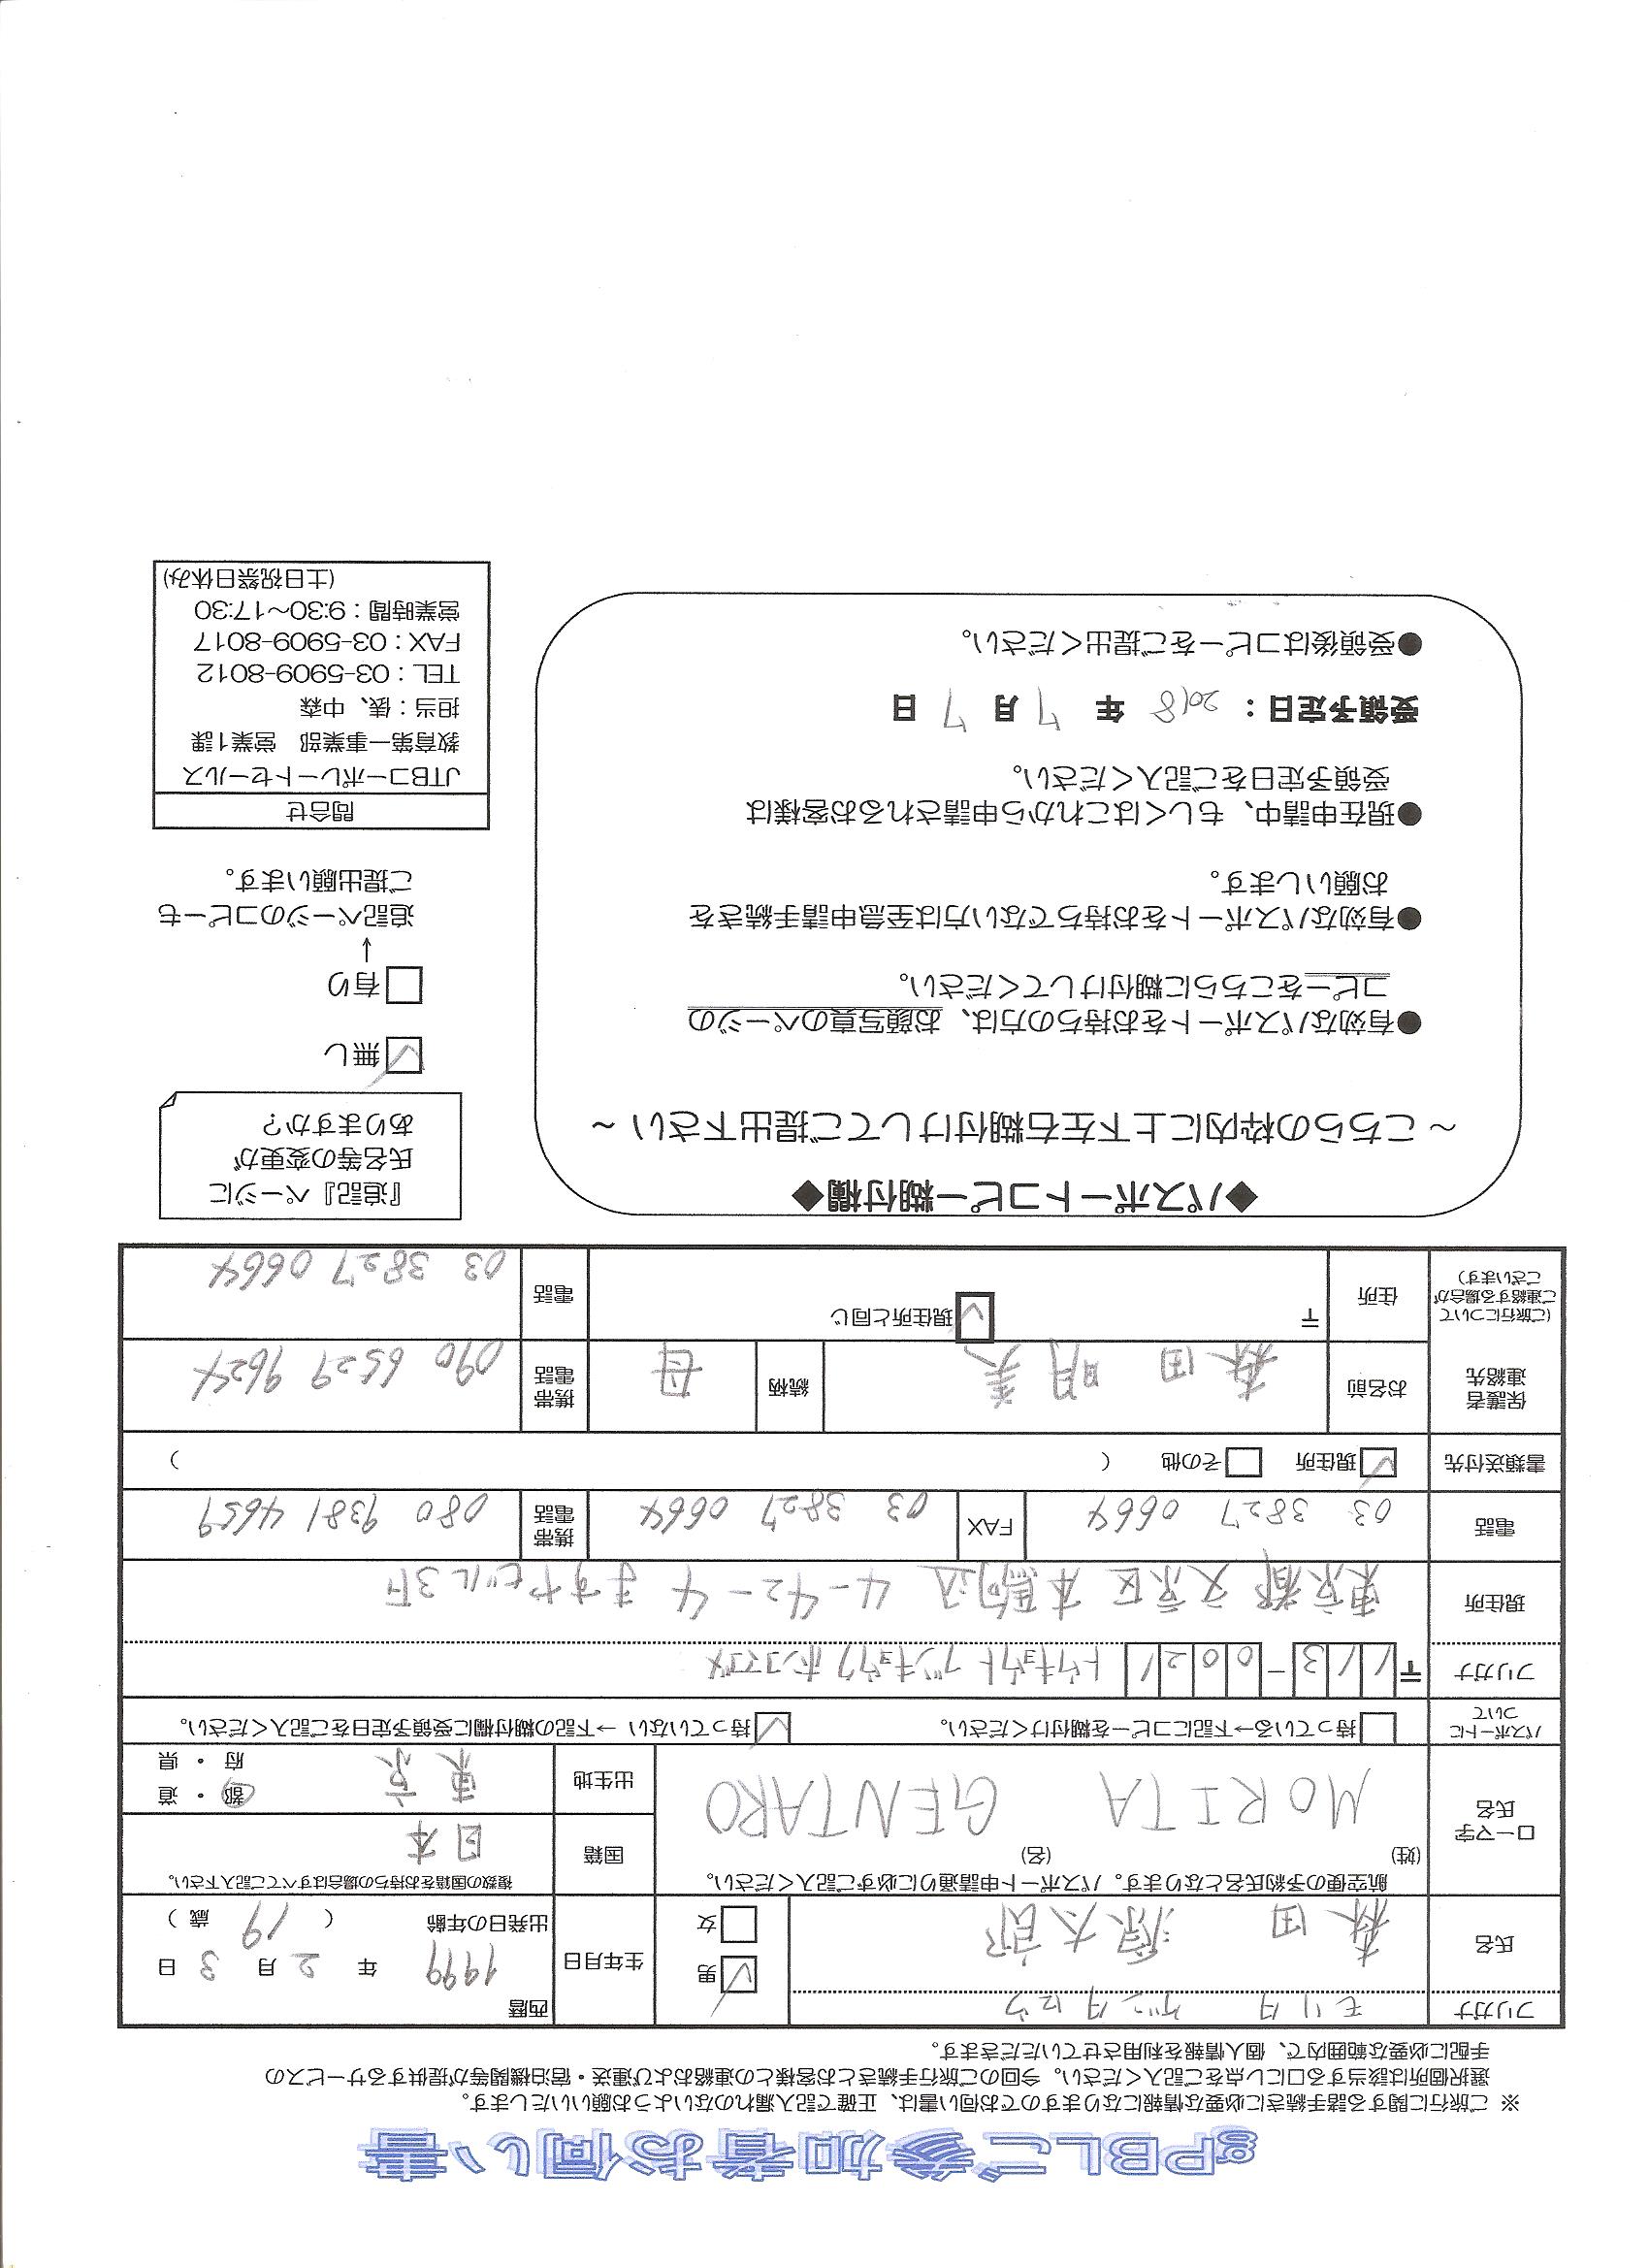 gPBLご参加者お伺い書
※ ご旅行に関する諸手続きに必要な情報になりますのでお伺い書は、正確で記入漏れのないようお願いいたします。
選択個所は該当する口にレ点をご記入ください。今回のご旅行手続きとお客様との連絡および運送・宿泊機関等が提供するサービスの
手配に必要な範囲内で、個人情報を利用させていただきます。
フリガナ モリタ ゲンタロウ
氏名 森田 源太郎
☑男
☐女
生年月日 西暦 1999 年 2 月 3 日
出発日の年齢 ( 19 歳 )
ローマ字
氏名
航空便の予約氏名となります。パスポート申請通りに必ずご記入ください。
(姓) MORITA (名) GENTARO
国籍 複数の国籍をお持ちの場合はすべてご記入下さい。
日本
出生地 東京 都 ・ 道
府 ・ 県
パスポートに
ついて
☐持っている→下記にコピーを糊付けください。 ☑持っていない →下記の糊付欄に受領予定日をご記入ください。
フリガナ 〒113-0021 トウキョウト ブンキョウク ホンコマゴメ
現住所 東京都 文京区 本駒込 4-42-4 ますやビル3F
電話 03 3827 0664 FAX 03 3827 0664 携帯
電話 080 9381 4659
書類送付先 ☑現住所 ☐その他 ( )
保護者
連絡先
(ご旅行について
ご連絡する場合が
ございます)
お名前 森田 明美 続柄 母 携帯
電話 090 6529 9624
住所 〒 ☑現住所と同じ 電話 03 3827 0664
◆パスポートコピー糊付欄◆
～ こちらの枠内に上下左右糊付けしてご提出下さい ～
●有効なパスポートをお持ちの方は、お顔写真のページの
コピーをこちらに糊付けしてください。
●有効なパスポートをお持ちでない方は至急申請手続きを
お願いします。
●現在申請中、もしくはこれから申請されるお客様は
受領予定日をご記入ください。
受領予定日： 2018 年 7 月 7 日
●受領後はコピーをご提出ください。
『追記』ページに
氏名等の変更が
ありますか？
☑無し
☐有り
↓
追記ページのコピーも
ご提出願います。
問合せ
JTBコーポレートセールス
教育第一事業部 営業1課
担当：俵、中森
TEL：03-5909-8012
FAX：03-5909-8017
営業時間：9:30～17:30
(土日祝祭日休み)